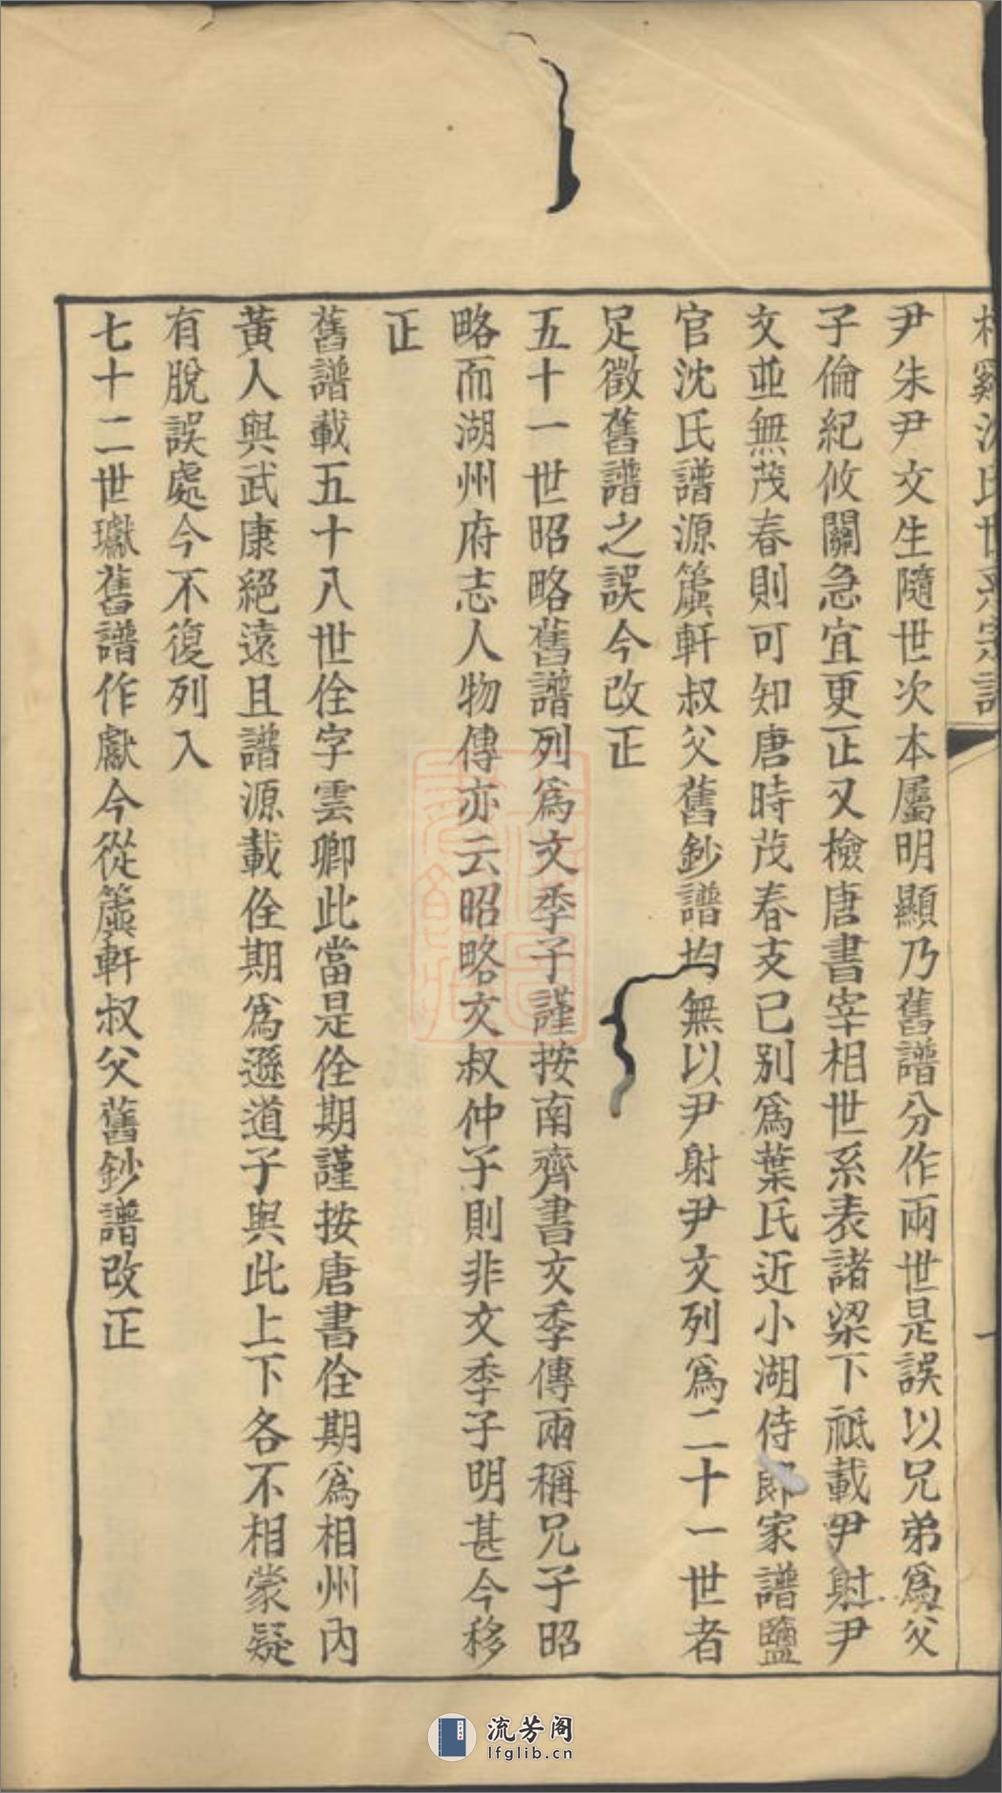 尹朱尹文生隨世次本屬明顯乃舊譜分作兩世是誤以兄弟爲父
子倫紀攸關急宜更正又檢唐書宰相世系表諸梁下祗載尹射尹
文並無茂春則可知唐時茂春支已別爲葉氏近小湖侍郎家譜鹽
官沈氏譜源簴軒叔父舊鈔譜均無以尹射尹文列爲二十一世者
足徵舊譜之誤今改正
五十一世昭略舊譜列爲文季子謹按南齊書文季傳兩稱兄子昭
略而湖州府志人物傳亦云昭略文叔仲子則非文季子明甚今移
正
舊譜載五十八世佺字雲卿此當是佺期謹按唐書佺期爲相州內
黃人與武康絕遠且譜源載佺期爲遜道子與此上下各不相蒙疑
有脫誤處今不復列入
七十二世瓛舊譜作獻今從簴軒叔父舊鈔譜改正
流芳阁
lfglib.cn